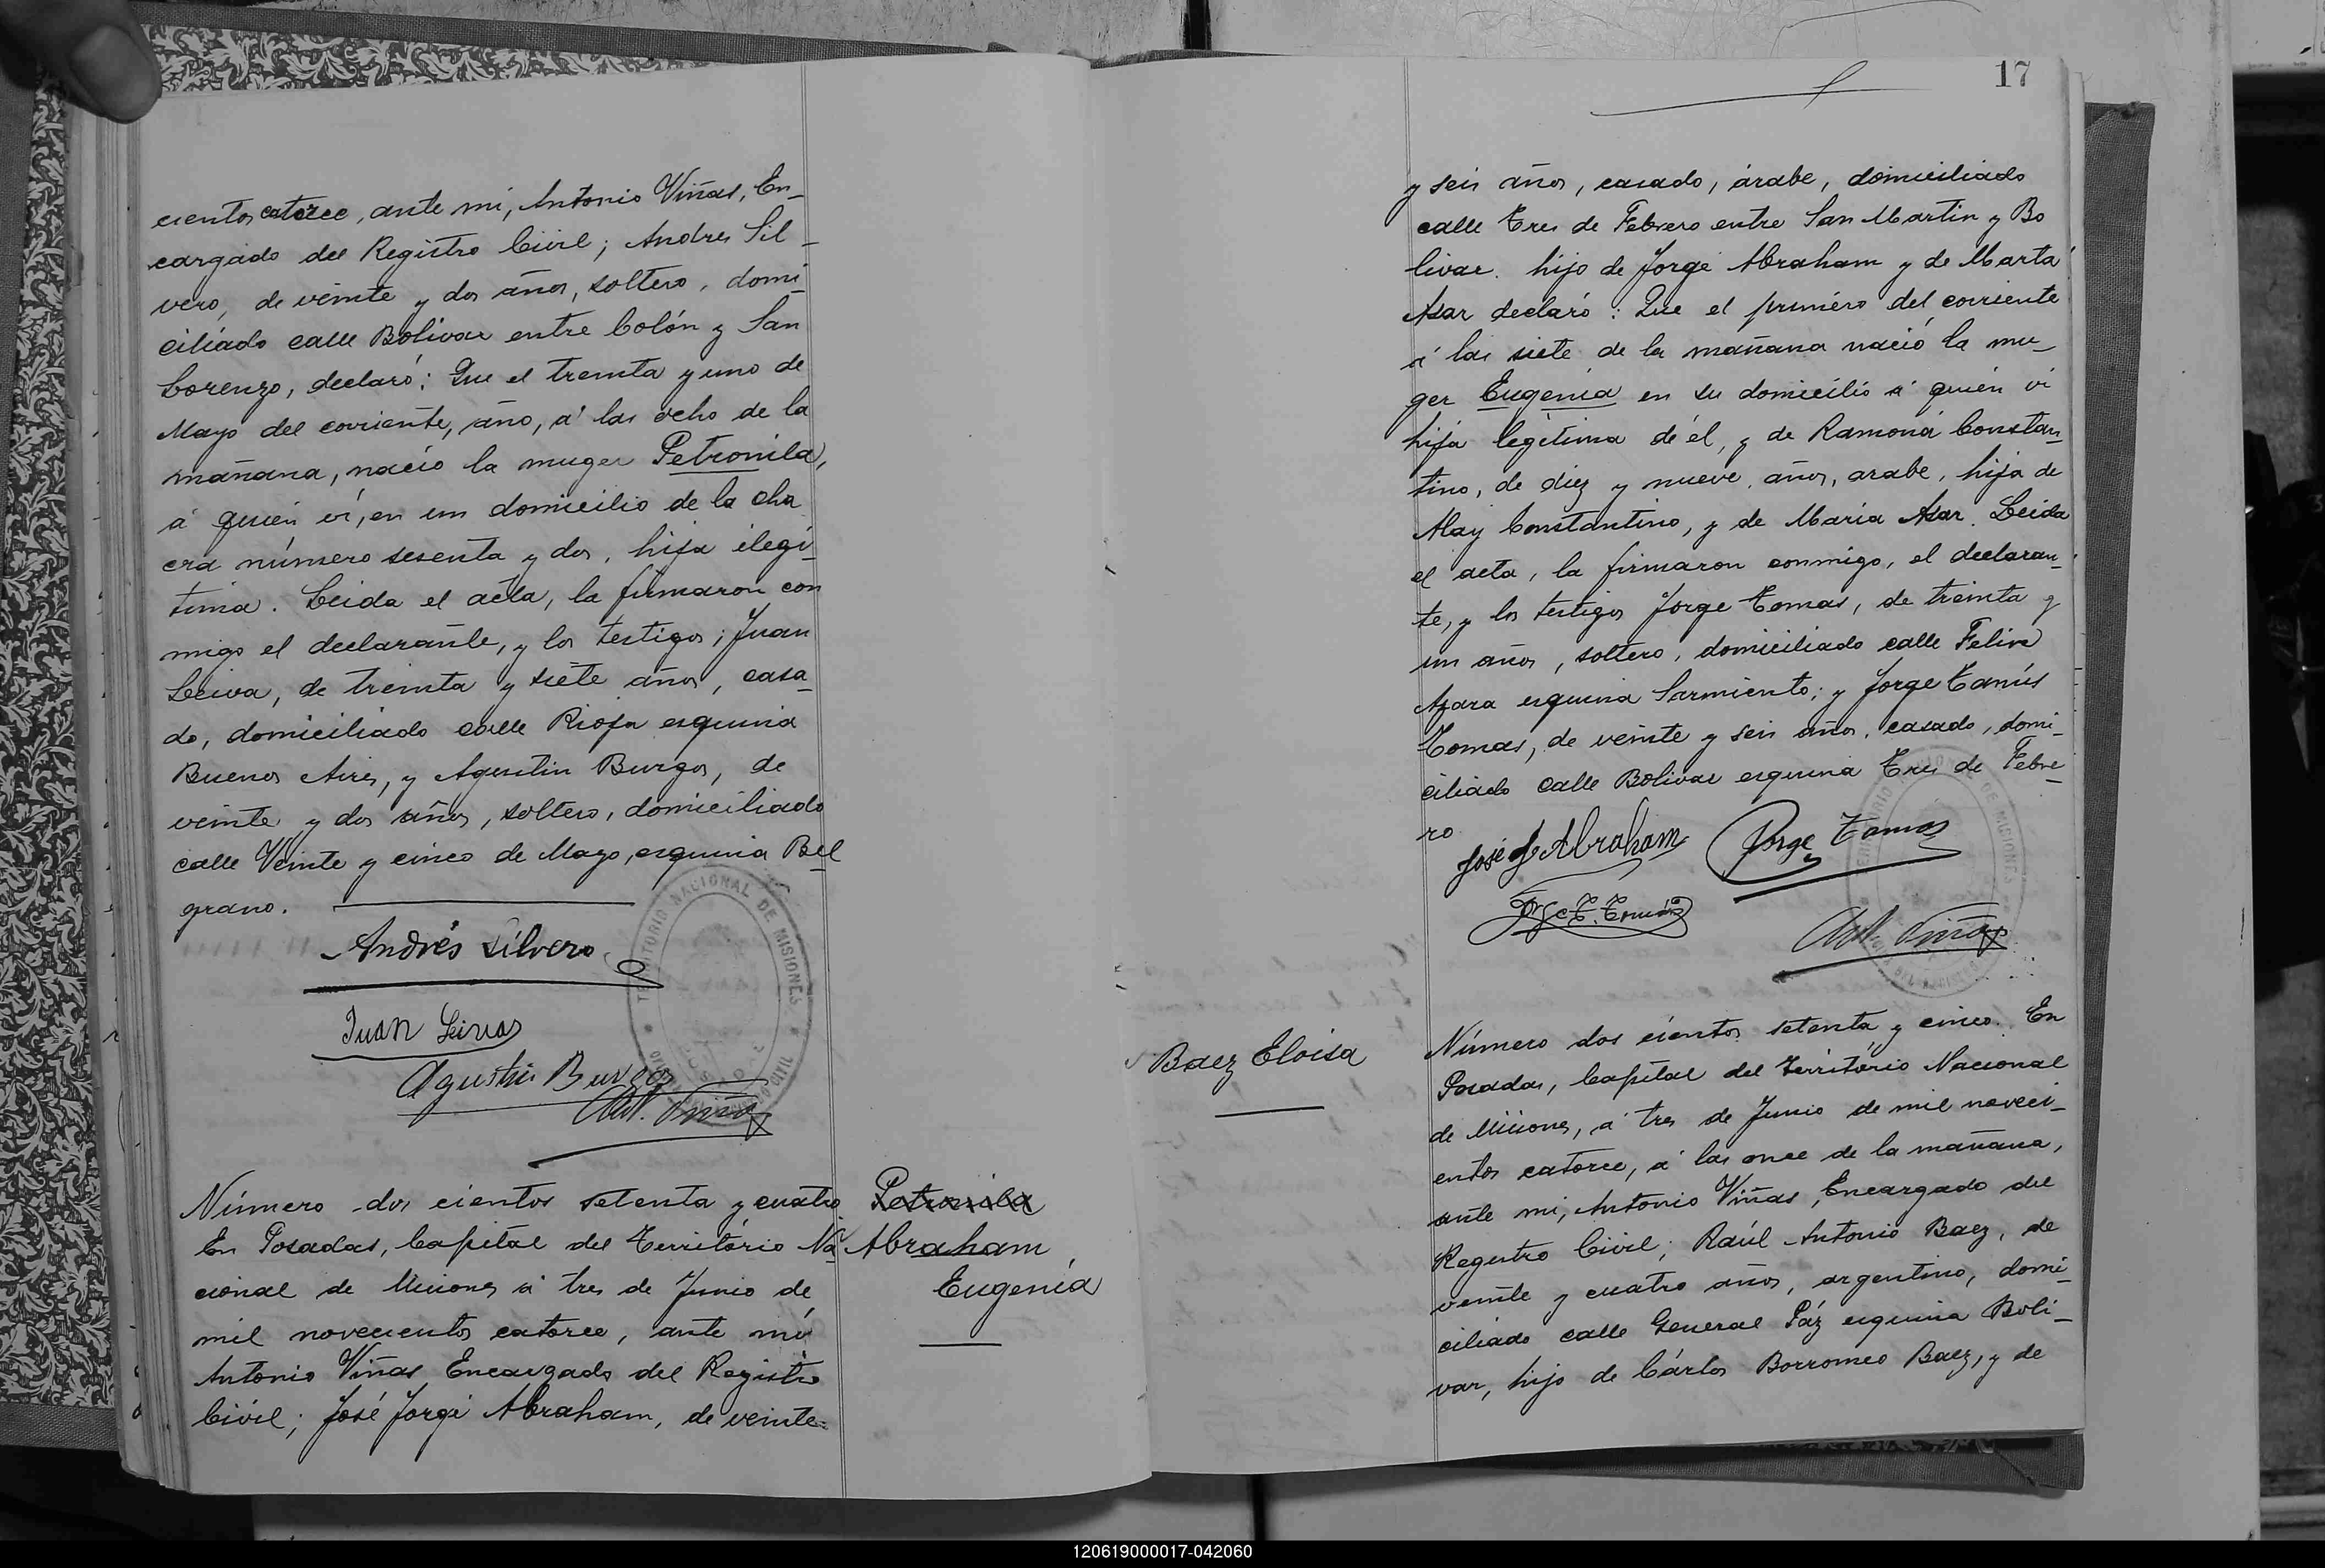 cientos catorce, ante mi, Antonio Viñas, En-
cargado del Registro Civil; Andres Sil-
vero, de veinte y dos años, soltero, domi-
ciliado calle Bolivar entre Colón y San
Lorenzo, declaró: Que el treinta y uno de
Mayo del corriente, año, á las ocho de la
mañana, nació la muger Petronila,
á quien ví, en un domicilio de la cha
cra número sesenta y dos, hija ilegí-
tima. Leida el acta, la firmaron con
migo el declarante, y los testigos; Juan
Leiva, de treinta y siete años, casa-
do, domiciliado calle Rioja esquina
Buenos Aires, y Agustin Burgos, de
veinte y dos años, soltero, domiciliado
calle Veinte y cinco de Mayo, esquina Bel
grano.
Andrés Silvero
Juan Leiva
Agustin Burgos
Ant. Viñas
TERRITORIO NACIONAL DE MISIONES
Número dos cientos setenta y cuatro
En Posadas, Capital del Territorio Na-
cional de Misiones á tres de Junio de
mil novecientos catorce, ante mi
Antonio Viñas Encargado del Registro
Civil; José Jorge Abraham, de veinte-
Petronila
Abraham
Eugenia
17
y seis años, casado, árabe, domiciliado
calle Tres de Febrero entre San Martin y Bo
livar. hijo de Jorge Abraham y de Marta
Asar declaró: Que el primero del corriente
á las siete de la mañana nació la mu-
ger Eugenia en su domicilio á quién ví
hija legitima de él, y de Ramona Constan-
tino, de diez y nueve años, arabe, hija de
Alay Constantino, y de María Asar. Leida
el acta, la firmaron conmigo, el declaran-
te, y los testigos Jorge Tomas, de treinta y
un años, soltero, domiciliado calle Felix
Azara esquina Sarmiento; y Jorge Tanús
Tomas, de veinte y seis años, casado, domi-
ciliado calle Bolivar esquina Tres de Febre-
ro
José J Abraham
Jorge Tomas
Jorge T. Tomás
Ant. Viñas
Baez Eloisa
Número dos cientos setenta y cinco. En
Posadas, Capital del Territorio Nacional
de Misiones, á tres de Junio de mil noveci-
entos catorce, á las once de la mañana,
ante mi, Antonio Viñas, Encargado del
Registro Civil; Raúl Antonio Baez, de
veinte y cuatro años, argentino, domi-
ciliado calle General Páz esquina Boli-
var, hijo de Cárlos Borromeo Baez, y de
120619000017-042060